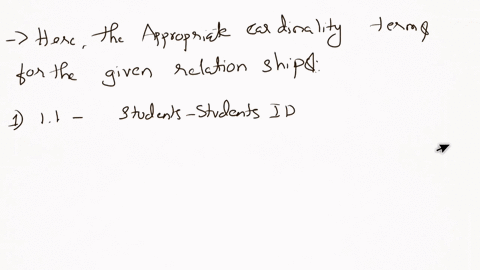 -> Here, the Appropriate cardinality terms
for the given relation ships:
1) 1.1 - Students-Students ID